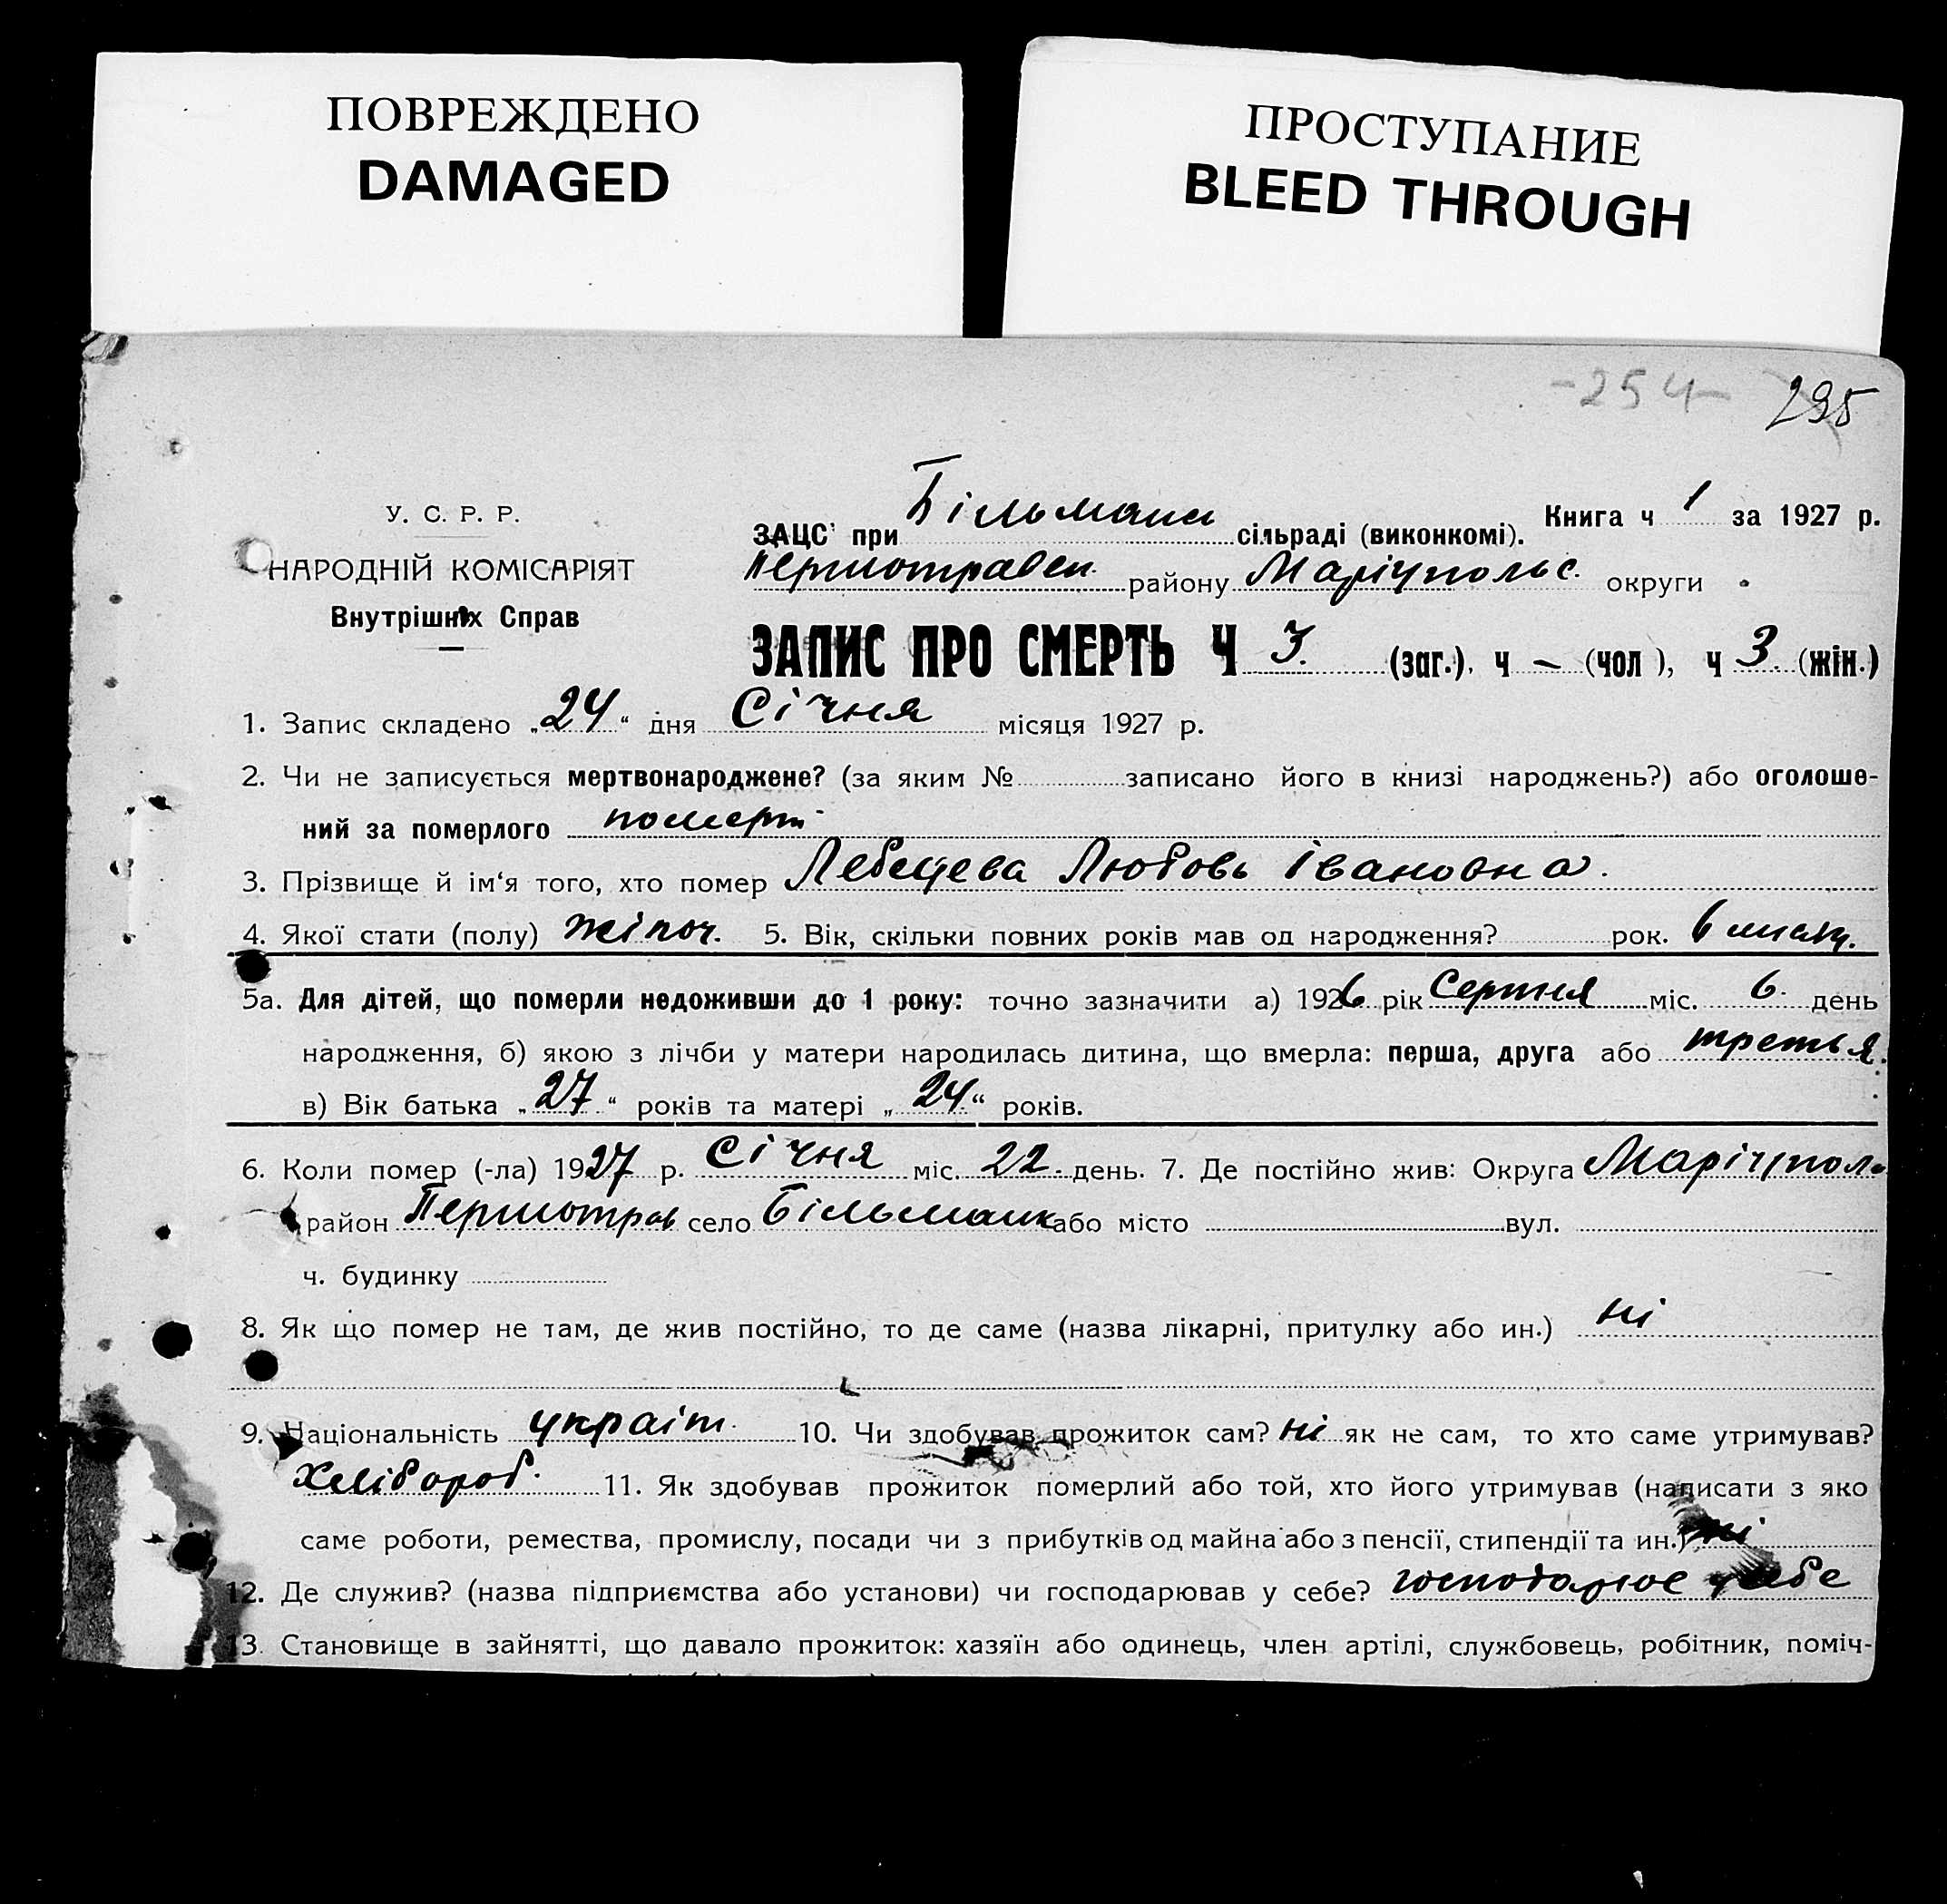 ПОВРЕЖДЕНО
DAMAGED
ПРОСТУПАНИЕ
BLEED THROUGH
-254- 295
У. С. Р. Р.
НАРОДНІЙ КОМІСАРІЯТ
Внутрішніх Справ
Книга ч 1 за 1927 р.
ЗАЦС при Більманк сільраді (виконкомі).
Першотравен. району Маріупольс. округи
ЗАПИС ПРО СМЕРТЬ Ч 3. (заг.), ч – (чол), ч 3. (жін.)
1. Запис складено „24“ дня Січня місяця 1927 р.
2. Чи не записується мертвонароджене? (за яким № записано його в книзі народжень?) або оголоше-
ний за померлого померт
3. Прізвище й ім‘я того, хто помер Лебецева Любовь Івановна.
4. Якої стати (полу) жіноч. 5. Вік, скільки повних років мав од народження? рок. 6 місяц.
5а. Для дітей, що померли недоживши до 1 року: точно зазначити а) 1926 рік Серпня міс. 6. день
народження, б) якою з лічби у матери народилась дитина, що вмерла: перша, друга або третья.
в) Вік батька „27“ років та матері „24“ років.
6. Коли помер (-ла) 1927 р. Січня міс. 22. день. 7. Де постійно жив: Округа Маріупол.
район Першотрав село Більманка або місто вул.
ч. будинку
8. Як що помер не там, де жив постійно, то де саме (назва лікарні, притулку або ин.) ні
9. Національність україт. 10. Чи здобував прожиток сам? ні як не сам, то хто саме утримував?
Хлібороб. 11. Як здобував прожиток померлий або той, хто його утримував (написати з яко
саме роботи, ремества, промислу, посади чи з прибутків од майна або з пенсії, стипендії та ин.) ні
12. Де служив? (назва підприємства або установи) чи господарював у себе? господарює у себе
13. Становище в зайнятті, що давало прожиток: хазяїн або одинець, член артілі, службовець, робітник, поміч-